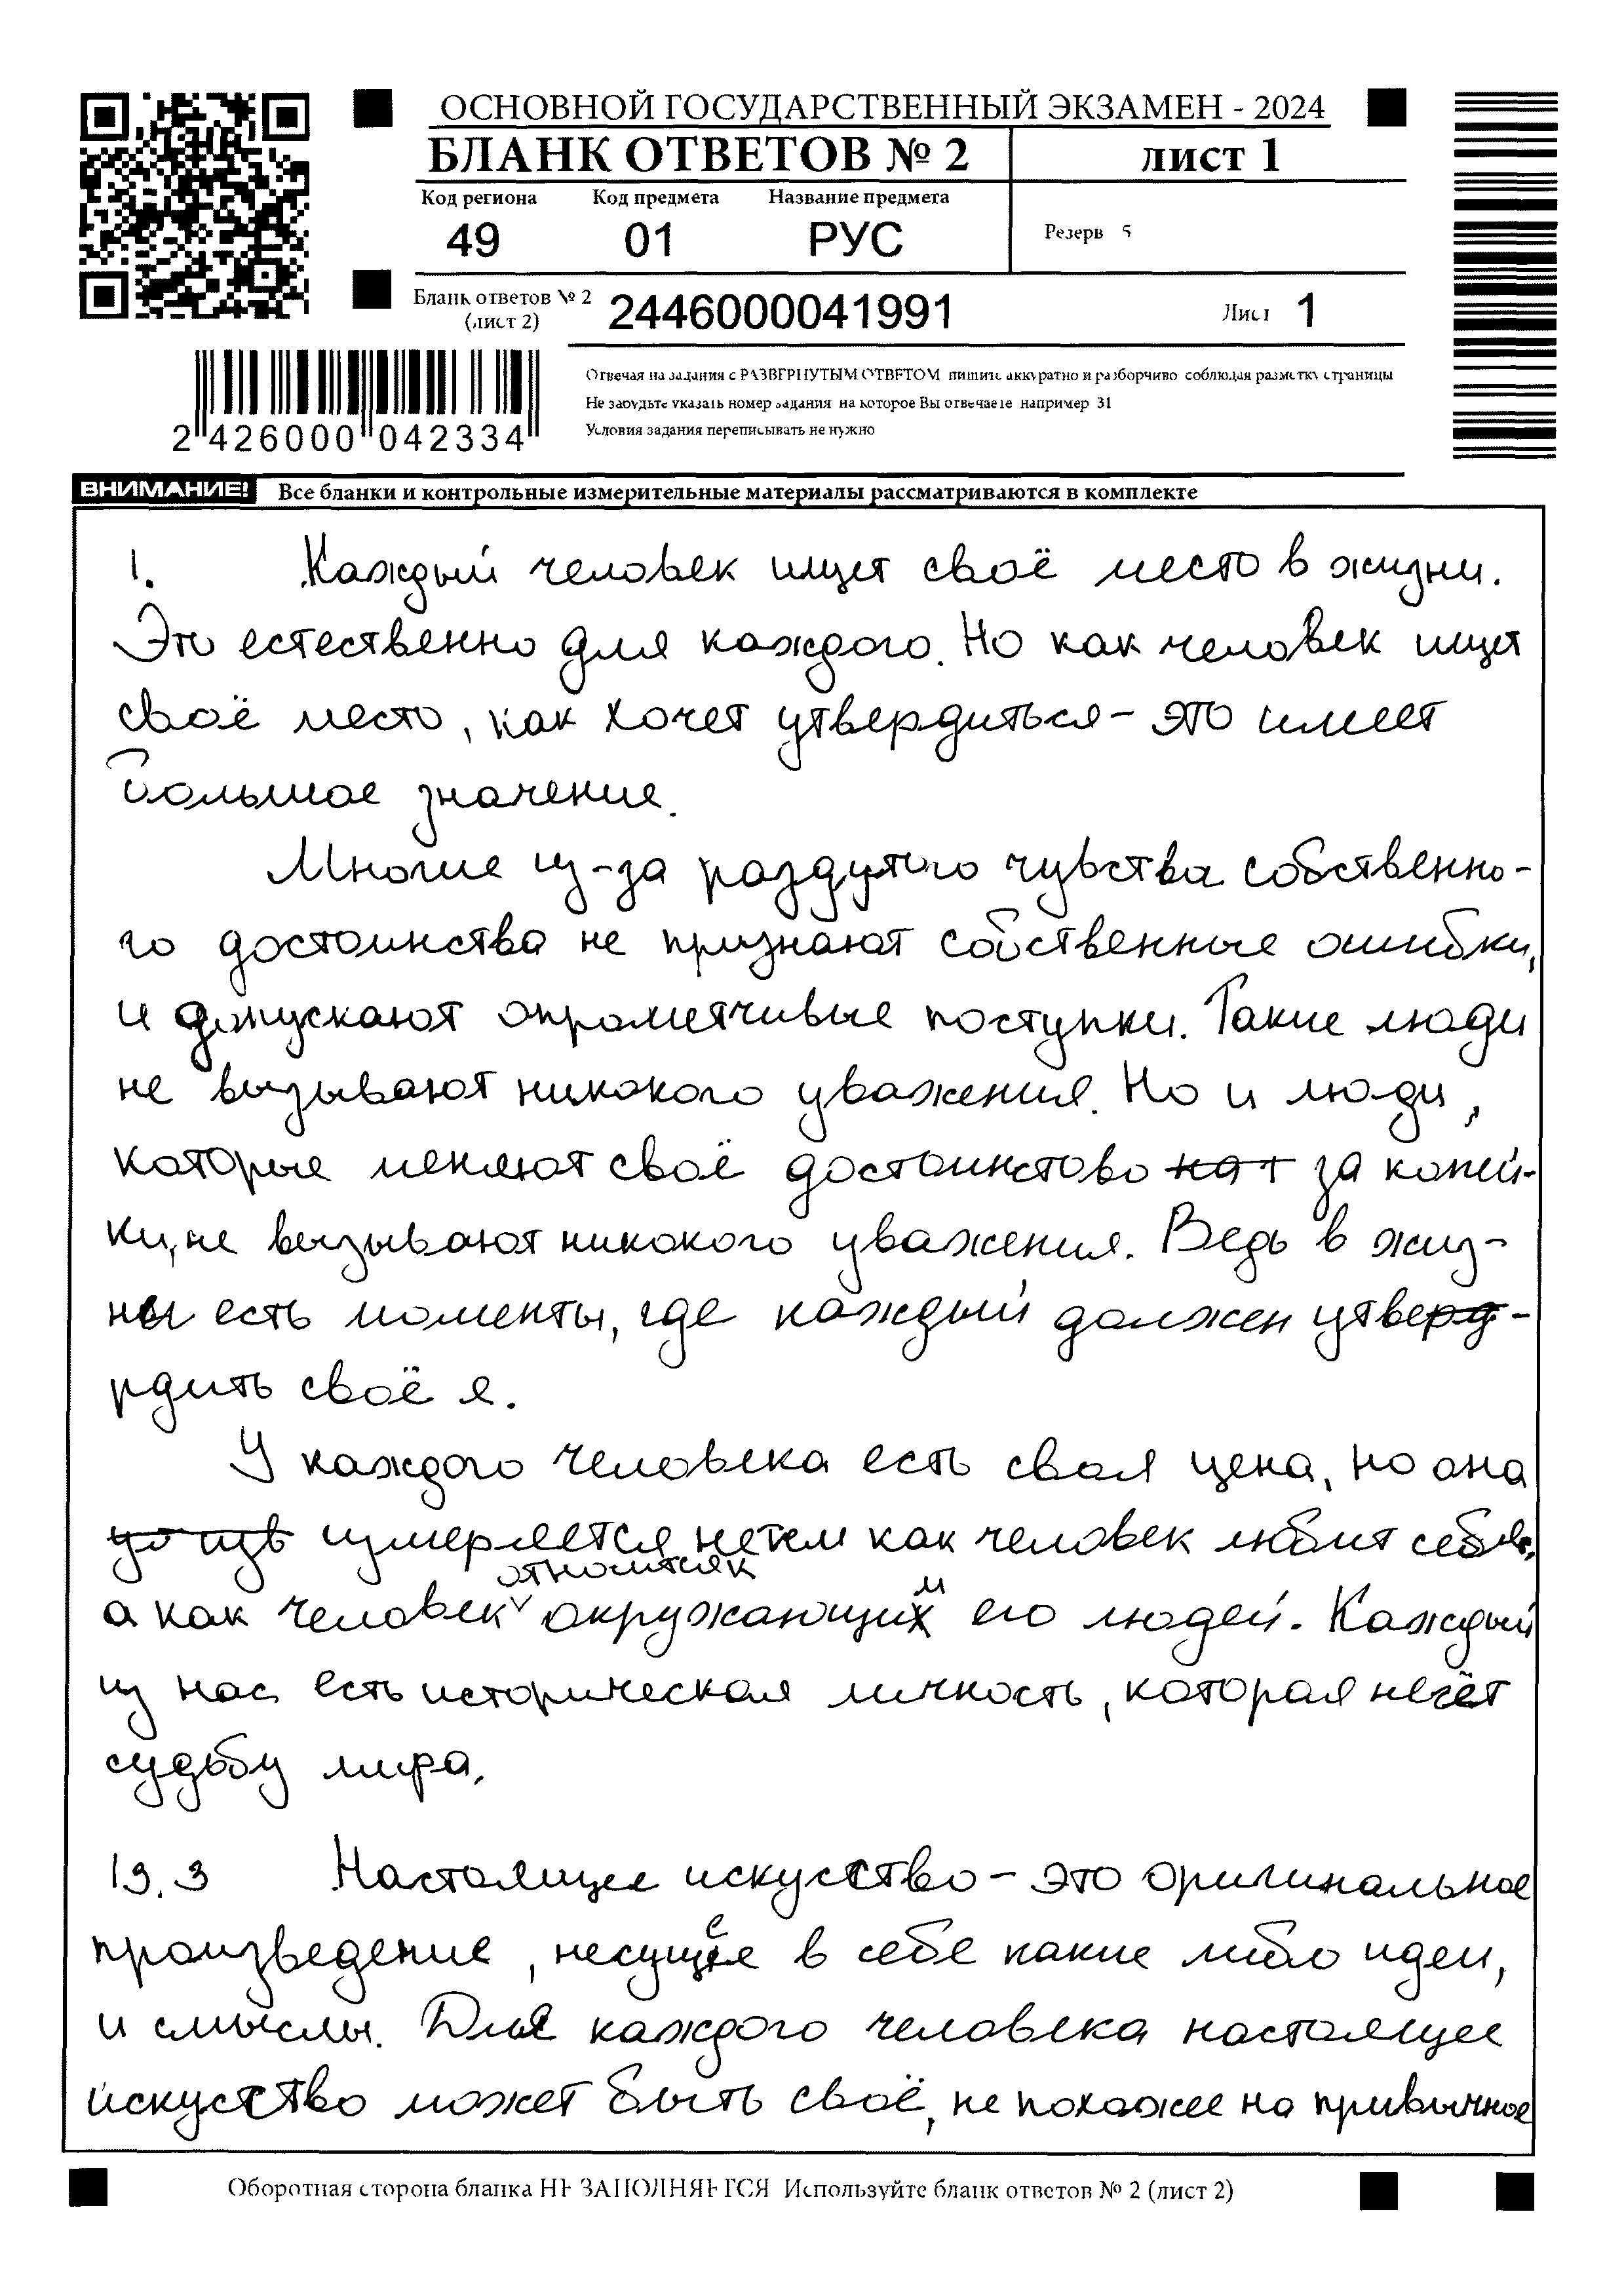 ОСНОВНОЙ ГОСУДАРСТВЕННЫЙ ЭКЗАМЕН - 2024
БЛАНК ОТВЕТОВ № 2
лист 1
Код региона Код предмета Название предмета
49 01 РУС
Резерв 5
Бланк ответов № 2
(лист 2)
2446000041991
Лист 1
2 426000 042334
Отвечая на задания с РАЗВЕРНУТЫМ ОТВЕТОМ пишите аккуратно и разборчиво соблюдая разметку страницы
Не забудьте указать номер задания на которое Вы отвечаете например 31
Условия задания переписывать не нужно
ВНИМАНИЕ! Все бланки и контрольные измерительные материалы рассматриваются в комплекте
1. Каждый человек ищет своё место в жизни.
Это естественно для каждого. Но как человек ищет
своё место, как хочет утвердиться – это имеет
большое значение.
Многие из-за раздутого чувства собственно-
го достоинства не признают собственные ошибки,
и допускают опрометчивые поступки. Такие люди
не вызывают никокого уважения. Но и люди,
которые меняют своё достоинстово за копей-
ки, не вызывают никокого уважения. Ведь в жиз-
ни есть моменты, где каждый должен утве-
рдить своё я.
У каждого человека есть своя цена, но она
измеряется не тем как человек любит себя,
а как человек относится к окружающим его людей. Каждый
из нас есть историческая личность, которая несёт
судьбу мира.
13.3 Настоящее искусство – это оригинальное
произведение, несущее в себе какие либо идеи,
и смыслы. Для каждого человека настоящее
искусство может быть своё, не похожее на привычное
Оборотная сторона бланка НЕ ЗАПОЛНЯЕТСЯ Используйте бланк ответов № 2 (лист 2)